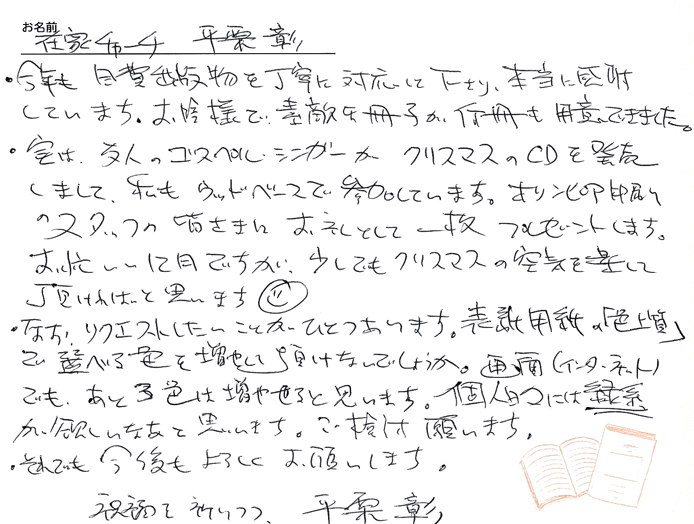 お名前
在家チャーチ 平栗 彰
・今年も自費出版物を丁寧に対応して下さり、本当に感謝
しています。お陰様で、素敵な冊子が何冊も用意できました。
・実は、友人のゴスペル・シンガーがクリスマスのCDを発売
しまして、私もウッドベースで参加しています。オリンピア印刷
のスタッフの皆さまにお礼として一枚プレゼントします。
お忙しい12月ですが、少しでもクリスマスの空気を楽して
頂ければと思います
・なお、リクエストしたいことがひとつあります。表紙用紙の「色上質」
で選べる色を増やして頂けないでしょうか。画面(インターネット)
でも、あと3色は増やせると思います。個人的には緑系
が欲しいなあと思います。ご検討願います。
・それでも今後もよろしくお願いします。
祝福を祈りつつ、平栗 彰